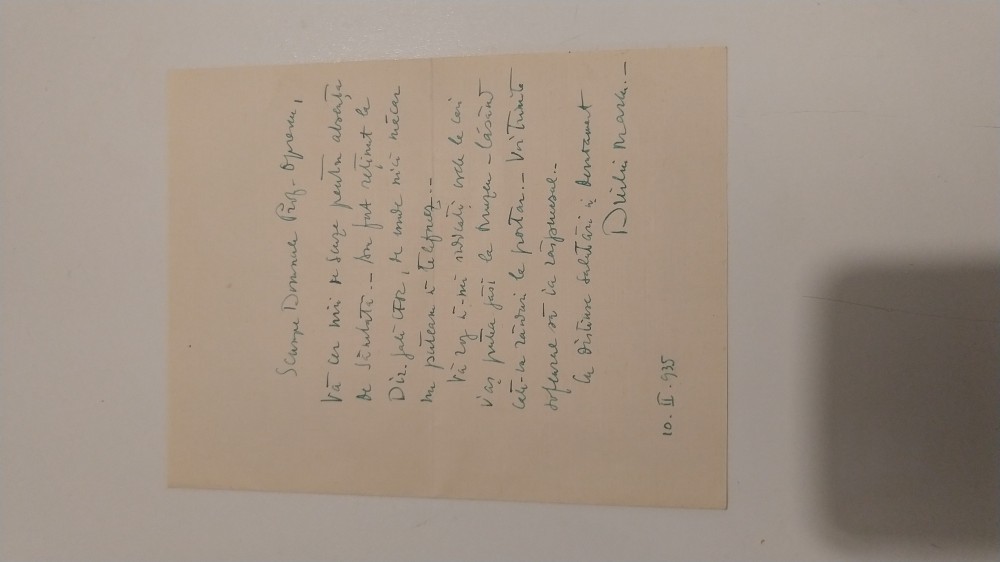 Scumpe Domnule Prof. Oprescu,
Vă cer mii de scuze pentru absența
de Sâmbătă. – Am fost reținut la
Dir. Gală CFR, de unde nici măcar
nu puteam să telefonez. –
Vă rog să-mi indicați orele la cari
v'aș putea găsi la Muzeu – lăsând
câte-va rânduri la portar. – Voi trimite
să ia răspunsul. –
Cu distinse salutări și devotament
Duiliu Marcu. –
10.II.935